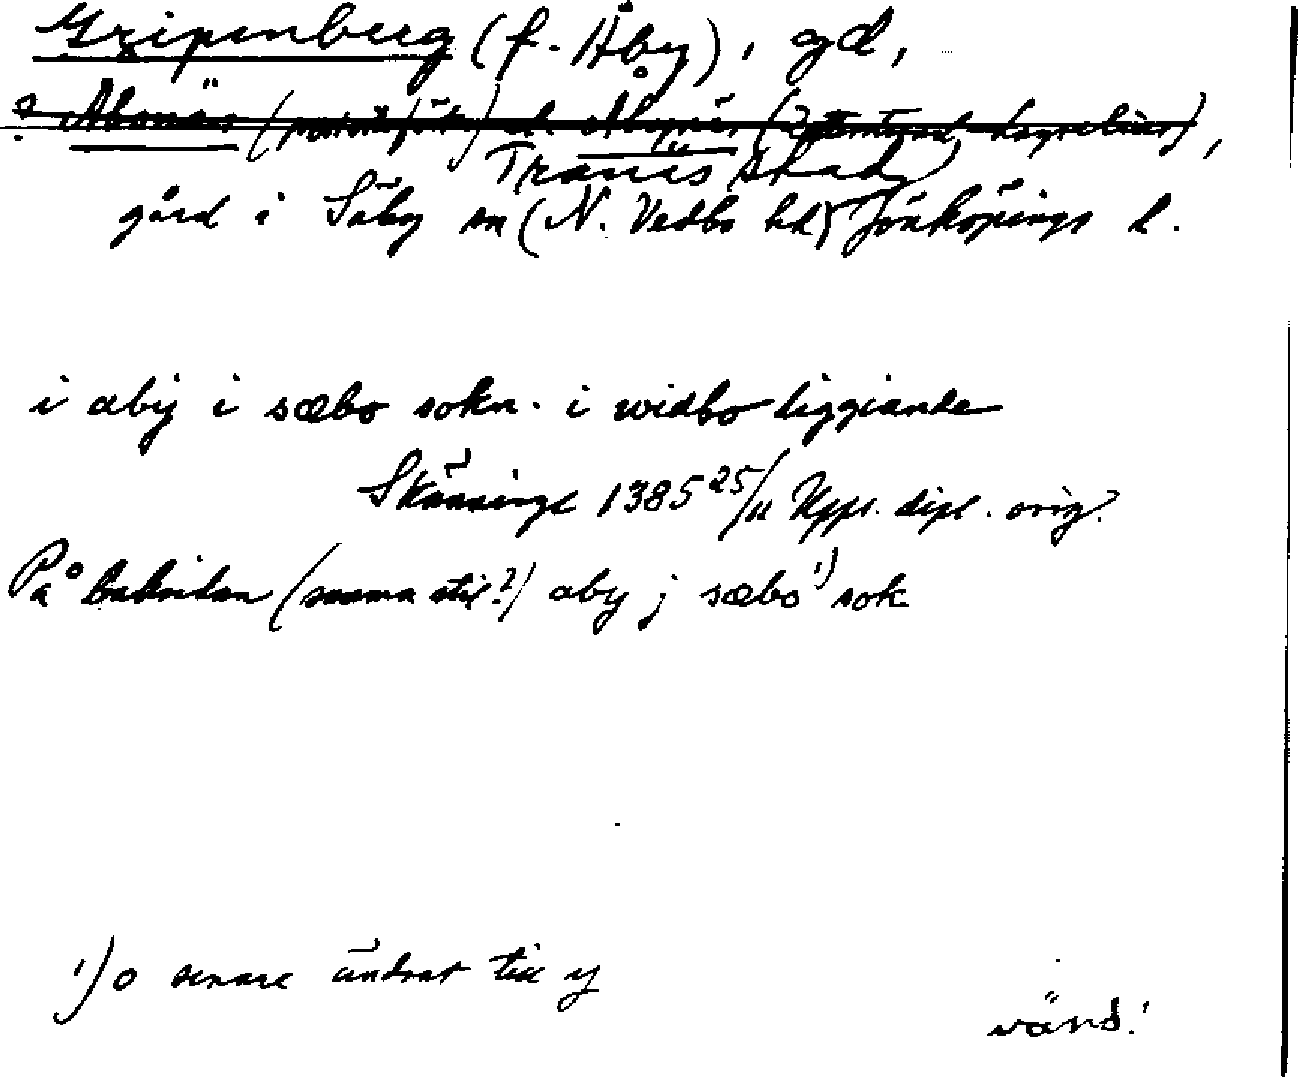 Gripenberg (f. Åby), gd,
? Abonäs ( ) el. Åbynäs (?
Tranås stad
gård i Säby sn (N. Vedbo hd) Jönköpings l.
i abij i sæbo sokn. i widbo liggiande
Skänninge 1385 25/11 Uppl. dipl. orig.
På baksidan (samma stil?) aby j sæbo 1) sok
1) o senare ändrat till y
vänd!